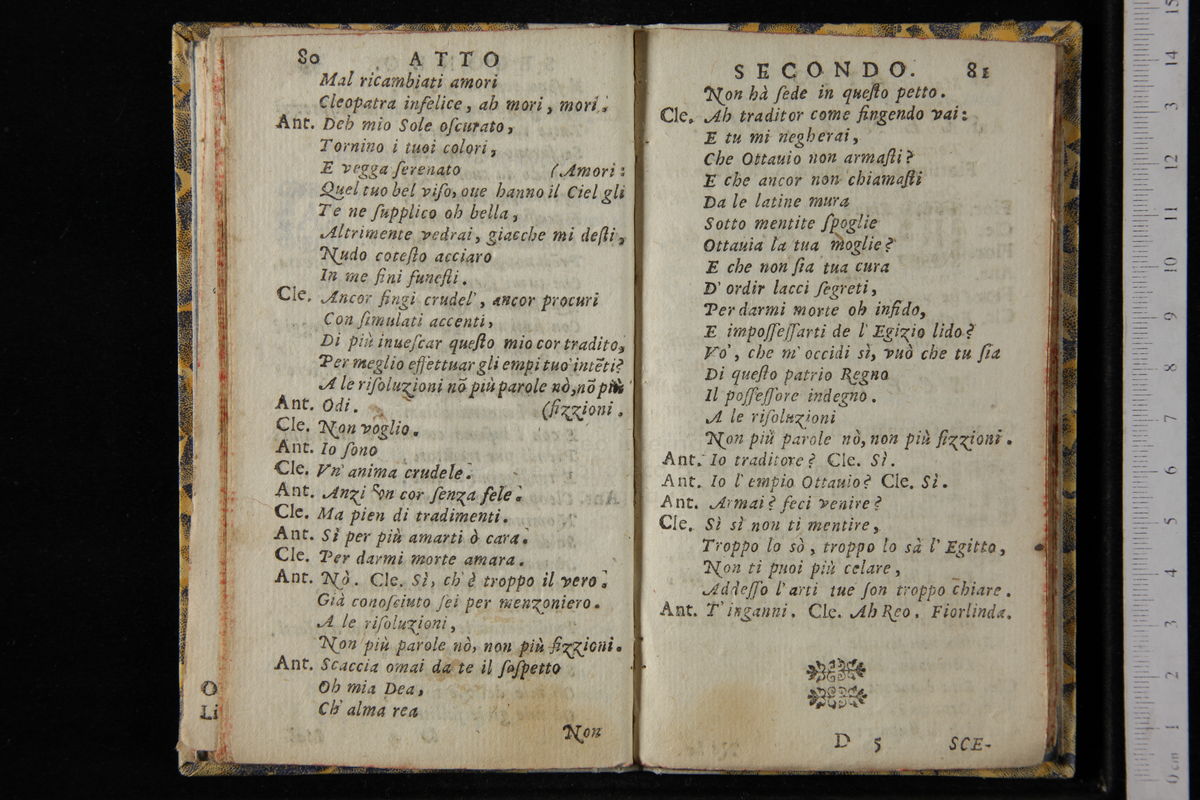 80 ATTO
Mal ricambiati amori
Cleopatra infelice, ah mori, mori.
Ant. Deh mio Sole oſcurato,
Tornino i tuoi colori,
E vegga ſerenato (Amori:
Quel tuo bel viſo, oue hanno il Ciel gli
Te ne ſupplico oh bella,
Altrimente vedrai, giacche mi deſti,
Nudo coteſto acciaro
In me fini funeſti.
Cle. Ancor fingi crudel', ancor procuri
Con ſimulati accenti,
Di più inueſcar queſto mio cor tradito,
Per meglio effettuar gli empi tuo' intēti?
A le riſoluzioni nō più parole nò, nō più
Ant. Odi. (fizzioni.
Cle. Non voglio.
Ant. Io ſono
Cle. Vn' anima crudele.
Ant. Anzi vn cor ſenza fele.
Cle. Ma pien di tradimenti.
Ant. Sì per più amarti ò cara.
Cle. Per darmi morte amara.
Ant. Nò. Cle. Sì, ch' è troppo il vero.
Già conoſciuto ſei per menzoniero.
A le riſoluzioni,
Non più parole nò, non più fizzioni.
Ant. Scaccia omai da te il ſoſpetto
Oh mia Dea,
Ch' alma rea
Non
O
Li
SECONDO. 81
Non hà ſede in queſto petto.
Cle. Ah traditor come fingendo vai:
E tu mi negherai,
Che Ottauio non armaſti?
E che ancor non chiamaſti
Da le latine mura
Sotto mentite ſpoglie
Ottauia la tua moglie?
E che non ſia tua cura
D' ordir lacci ſegreti,
Per darmi morte oh infido,
E impoſſeſſarti de l' Egizio lido?
Vò, che m' occidi sì, vuò che tu ſia
Di queſto patrio Regno
Il poſſeſſore indegno.
A le riſoluzioni
Non più parole nò, non più fizzioni.
Ant. Io traditore? Cle. Sì.
Ant. Io l' empio Ottauio? Cle. Sì.
Ant. Armai? feci venire?
Cle. Sì sì non ti mentire,
Troppo lo sò, troppo lo sà l' Egitto,
Non ti puoi più celare,
Addeſſo l' arti tue ſon troppo chiare.
Ant. T' inganni. Cle. Ah Reo. Fiorlinda.
D 5 SCE-